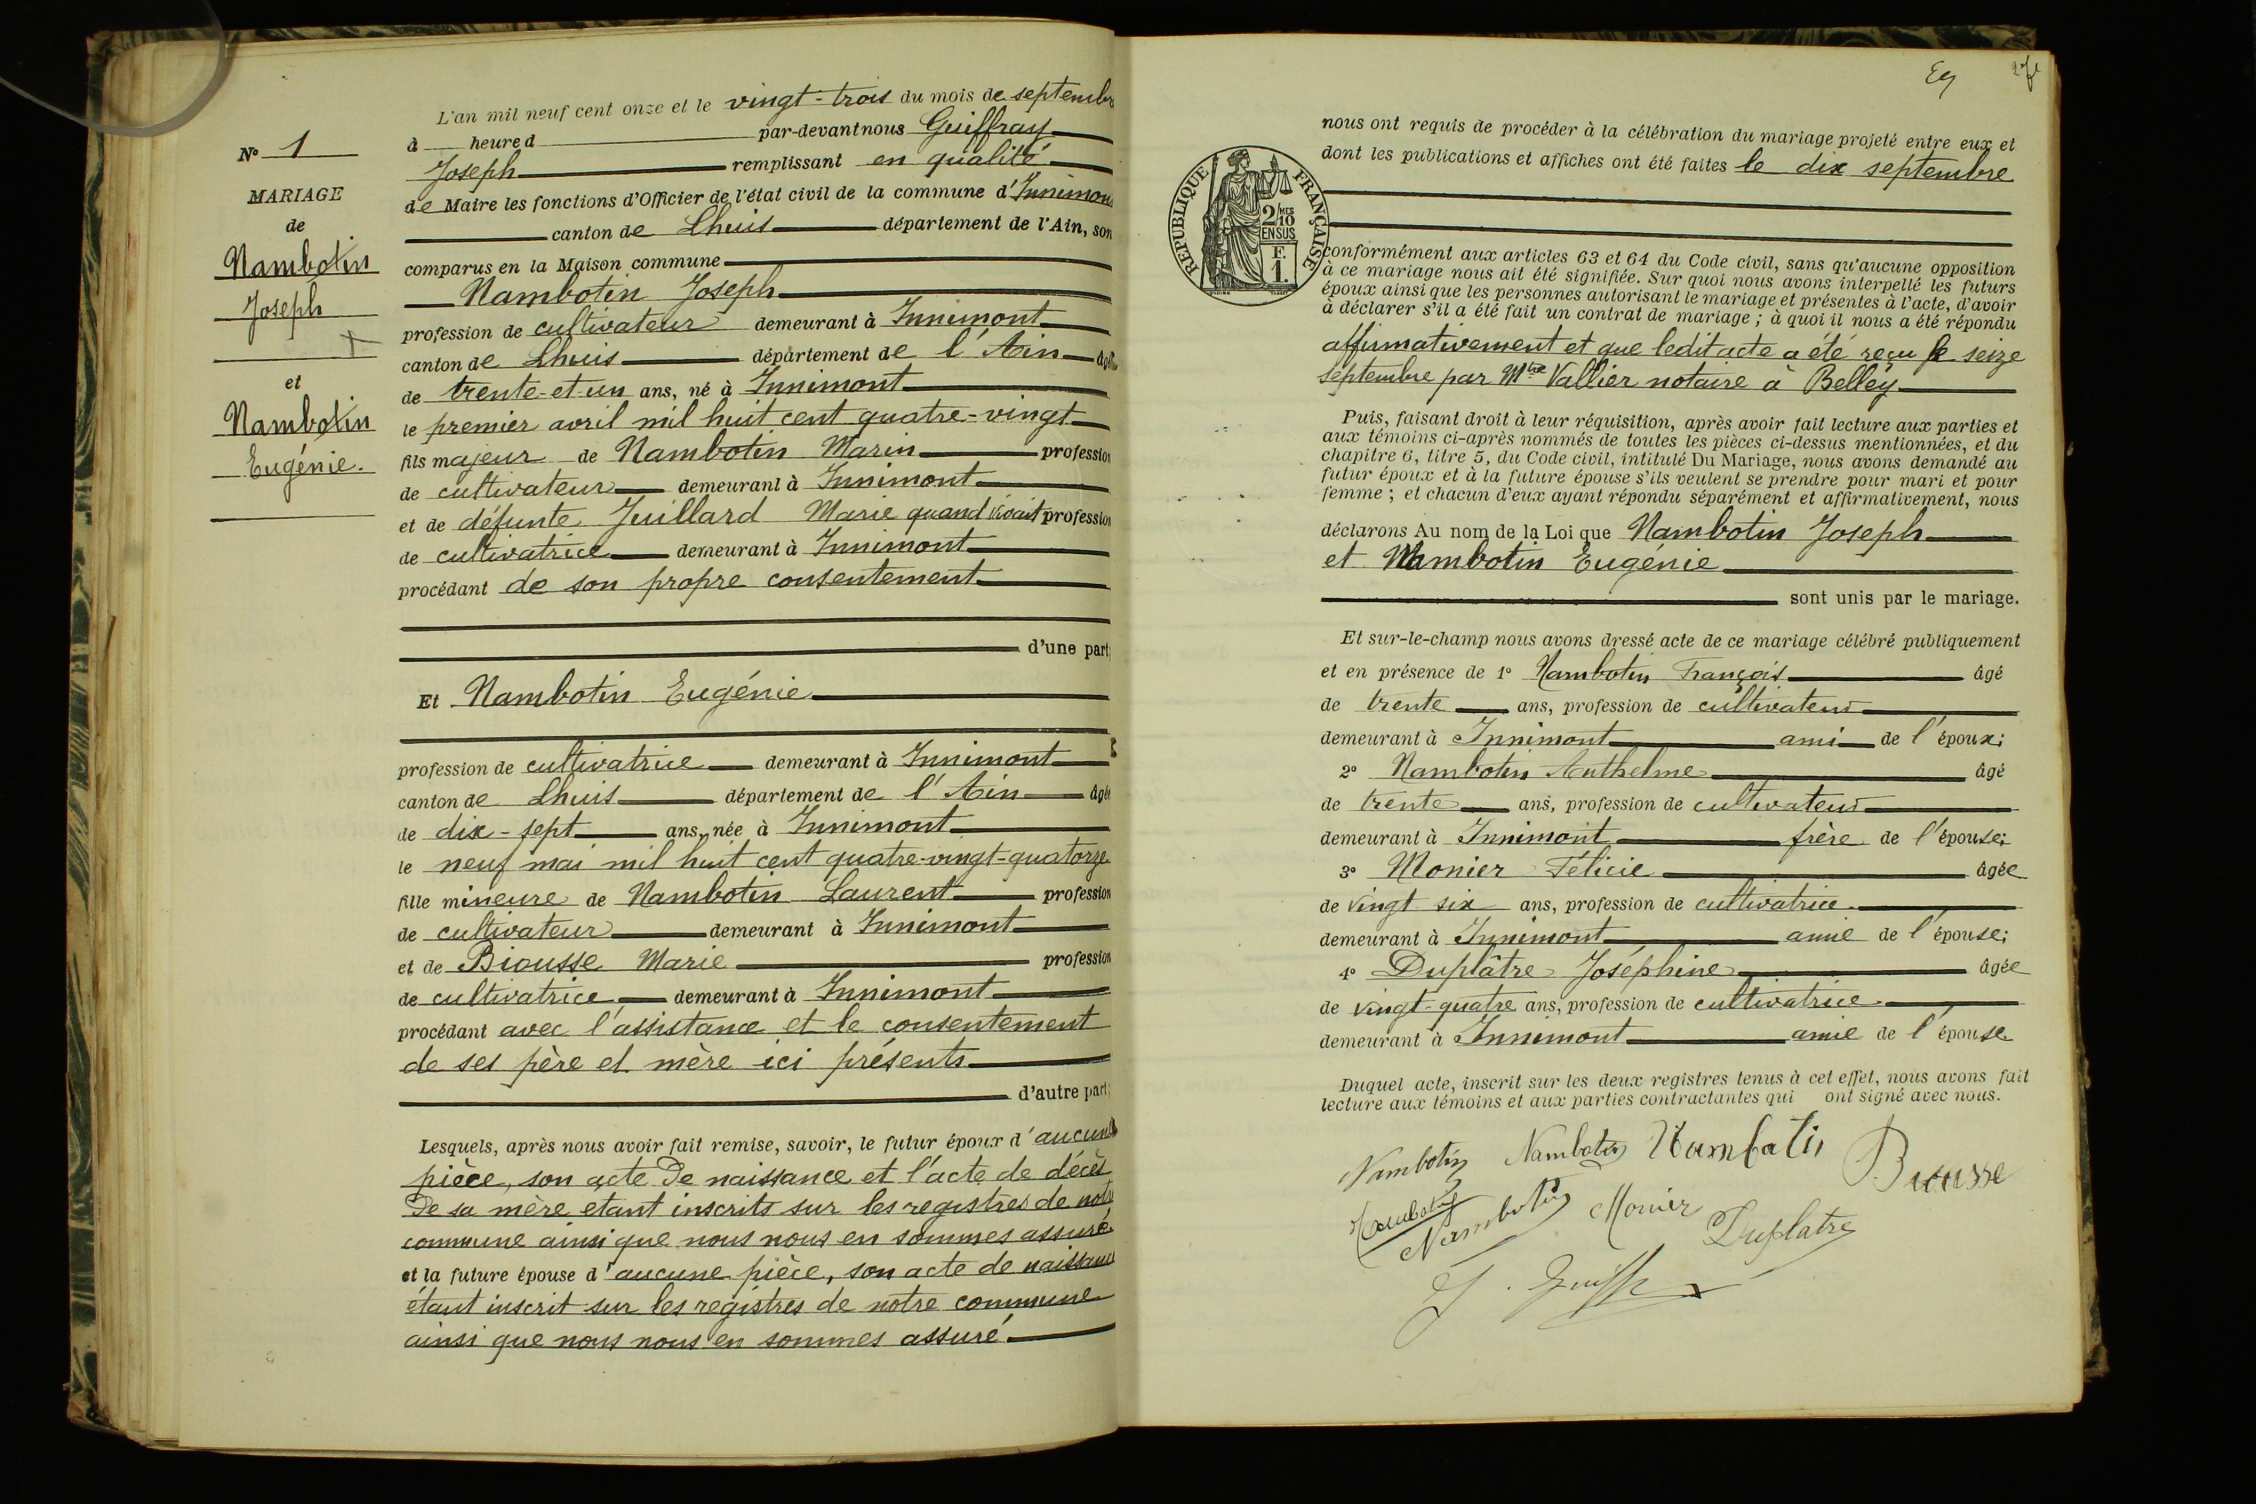 L'an mil neuf cent onze et le vingt-trois du mois de septembre
à heure d par-devant nous Guiffray
Joseph remplissant en qualité
de Maire les fonctions d'Officier de l'état civil de la commune d'Innimont
canton de Lhuis département de l'Ain, son
comparus en la Maison commune
Nambotin Joseph
profession de cultivateur demeurant à Innimont
canton de Lhuis département de l'Ain âgé
de trente-et-un ans, né à Innimont
le premier avril mil huit cent quatre-vingt
fils majeur de Nambotin Marin profession
de cultivateur demeurant à Innimont
et de défunte Juillard Marie quand vivait profession
de cultivatrice demeurant à Innimont
procédant de son propre consentement
d'une part;
Et Nambotin Eugénie
profession de cultivatrice demeurant à Innimont
canton de Lhuis département de l'Ain âgée
de dix-sept ans, née à Innimont
le neuf mai mil huit cent quatre-vingt-quatorze
fille mineure de Nambotin Laurent profession
de cultivateur demeurant à Innimont
et de Biousse Marie profession
de cultivatrice demeurant à Innimont
procédant avec l'assistance et le consentement
de ses père et mère ici présents
d'autre part;
Lesquels, après nous avoir fait remise, savoir, le futur époux d'aucune
pièce, son acte de naissance et l'acte de décès
de sa mère etant inscrits sur les registres de notre
commune ainsi que nous nous en sommes assuré
et la future épouse d'aucune pièce, son acte de naissance
étant inscrit sur les registres de notre commune
ainsi que nous nous en sommes assuré
N° 1
MARIAGE
de
Nambotin
Joseph
et
Nambotin
Eugénie.
nous ont requis de procéder à la célébration du mariage projeté entre eux et
dont les publications et affiches ont été faites le dix septembre
RÉPUBLIQUE FRANÇAISE
2/10 MES
EN SUS
F.
1.
conformément aux articles 63 et 64 du Code civil, sans qu'aucune opposition
à ce mariage nous ait été signifiée. Sur quoi nous avons interpellé les futurs
époux ainsi que les personnes autorisant le mariage et présentes à l'acte, d'avoir
à déclarer s'il a été fait un contrat de mariage; à quoi il nous a été répondu
affirmativement et que ledit acte a été reçu le seize
septembre par Mtre Vallier notaire à Belley
Puis, faisant droit à leur réquisition, après avoir fait lecture aux parties et
aux témoins ci-après nommés de toutes les pièces ci-dessus mentionnées, et du
chapitre 6, titre 5, du Code civil, intitulé Du Mariage, nous avons demandé au
futur époux et à la future épouse s'ils veulent se prendre pour mari et pour
femme; et chacun d'eux ayant répondu séparément et affirmativement, nous
déclarons Au nom de la Loi que Nambotin Joseph
et Nambotin Eugénie
sont unis par le mariage.
Et sur-le-champ nous avons dressé acte de ce mariage célébré publiquement
et en présence de 1° Nambotin François âgé
de trente ans, profession de cultivateur
demeurant à Innimont ami de l'époux;
2° Nambotin Anthelme âgé
de trente ans, profession de cultivateur
demeurant à Innimont frère de l'épouse;
3° Monier Félicie âgée
de vingt six ans, profession de cultivatrice
demeurant à Innimont amie de l'épouse;
4° Duplâtre Joséphine âgée
de vingt-quatre ans, profession de cultivatrice
demeurant à Innimont amie de l'épouse
Duquel acte, inscrit sur les deux registres tenus à cet effet, nous avons fait
lecture aux témoins et aux parties contractantes qui ont signé avec nous.
Nambotin Nambotin Nambotin Biousse
Nambotin Nambotin Monier Duplatre